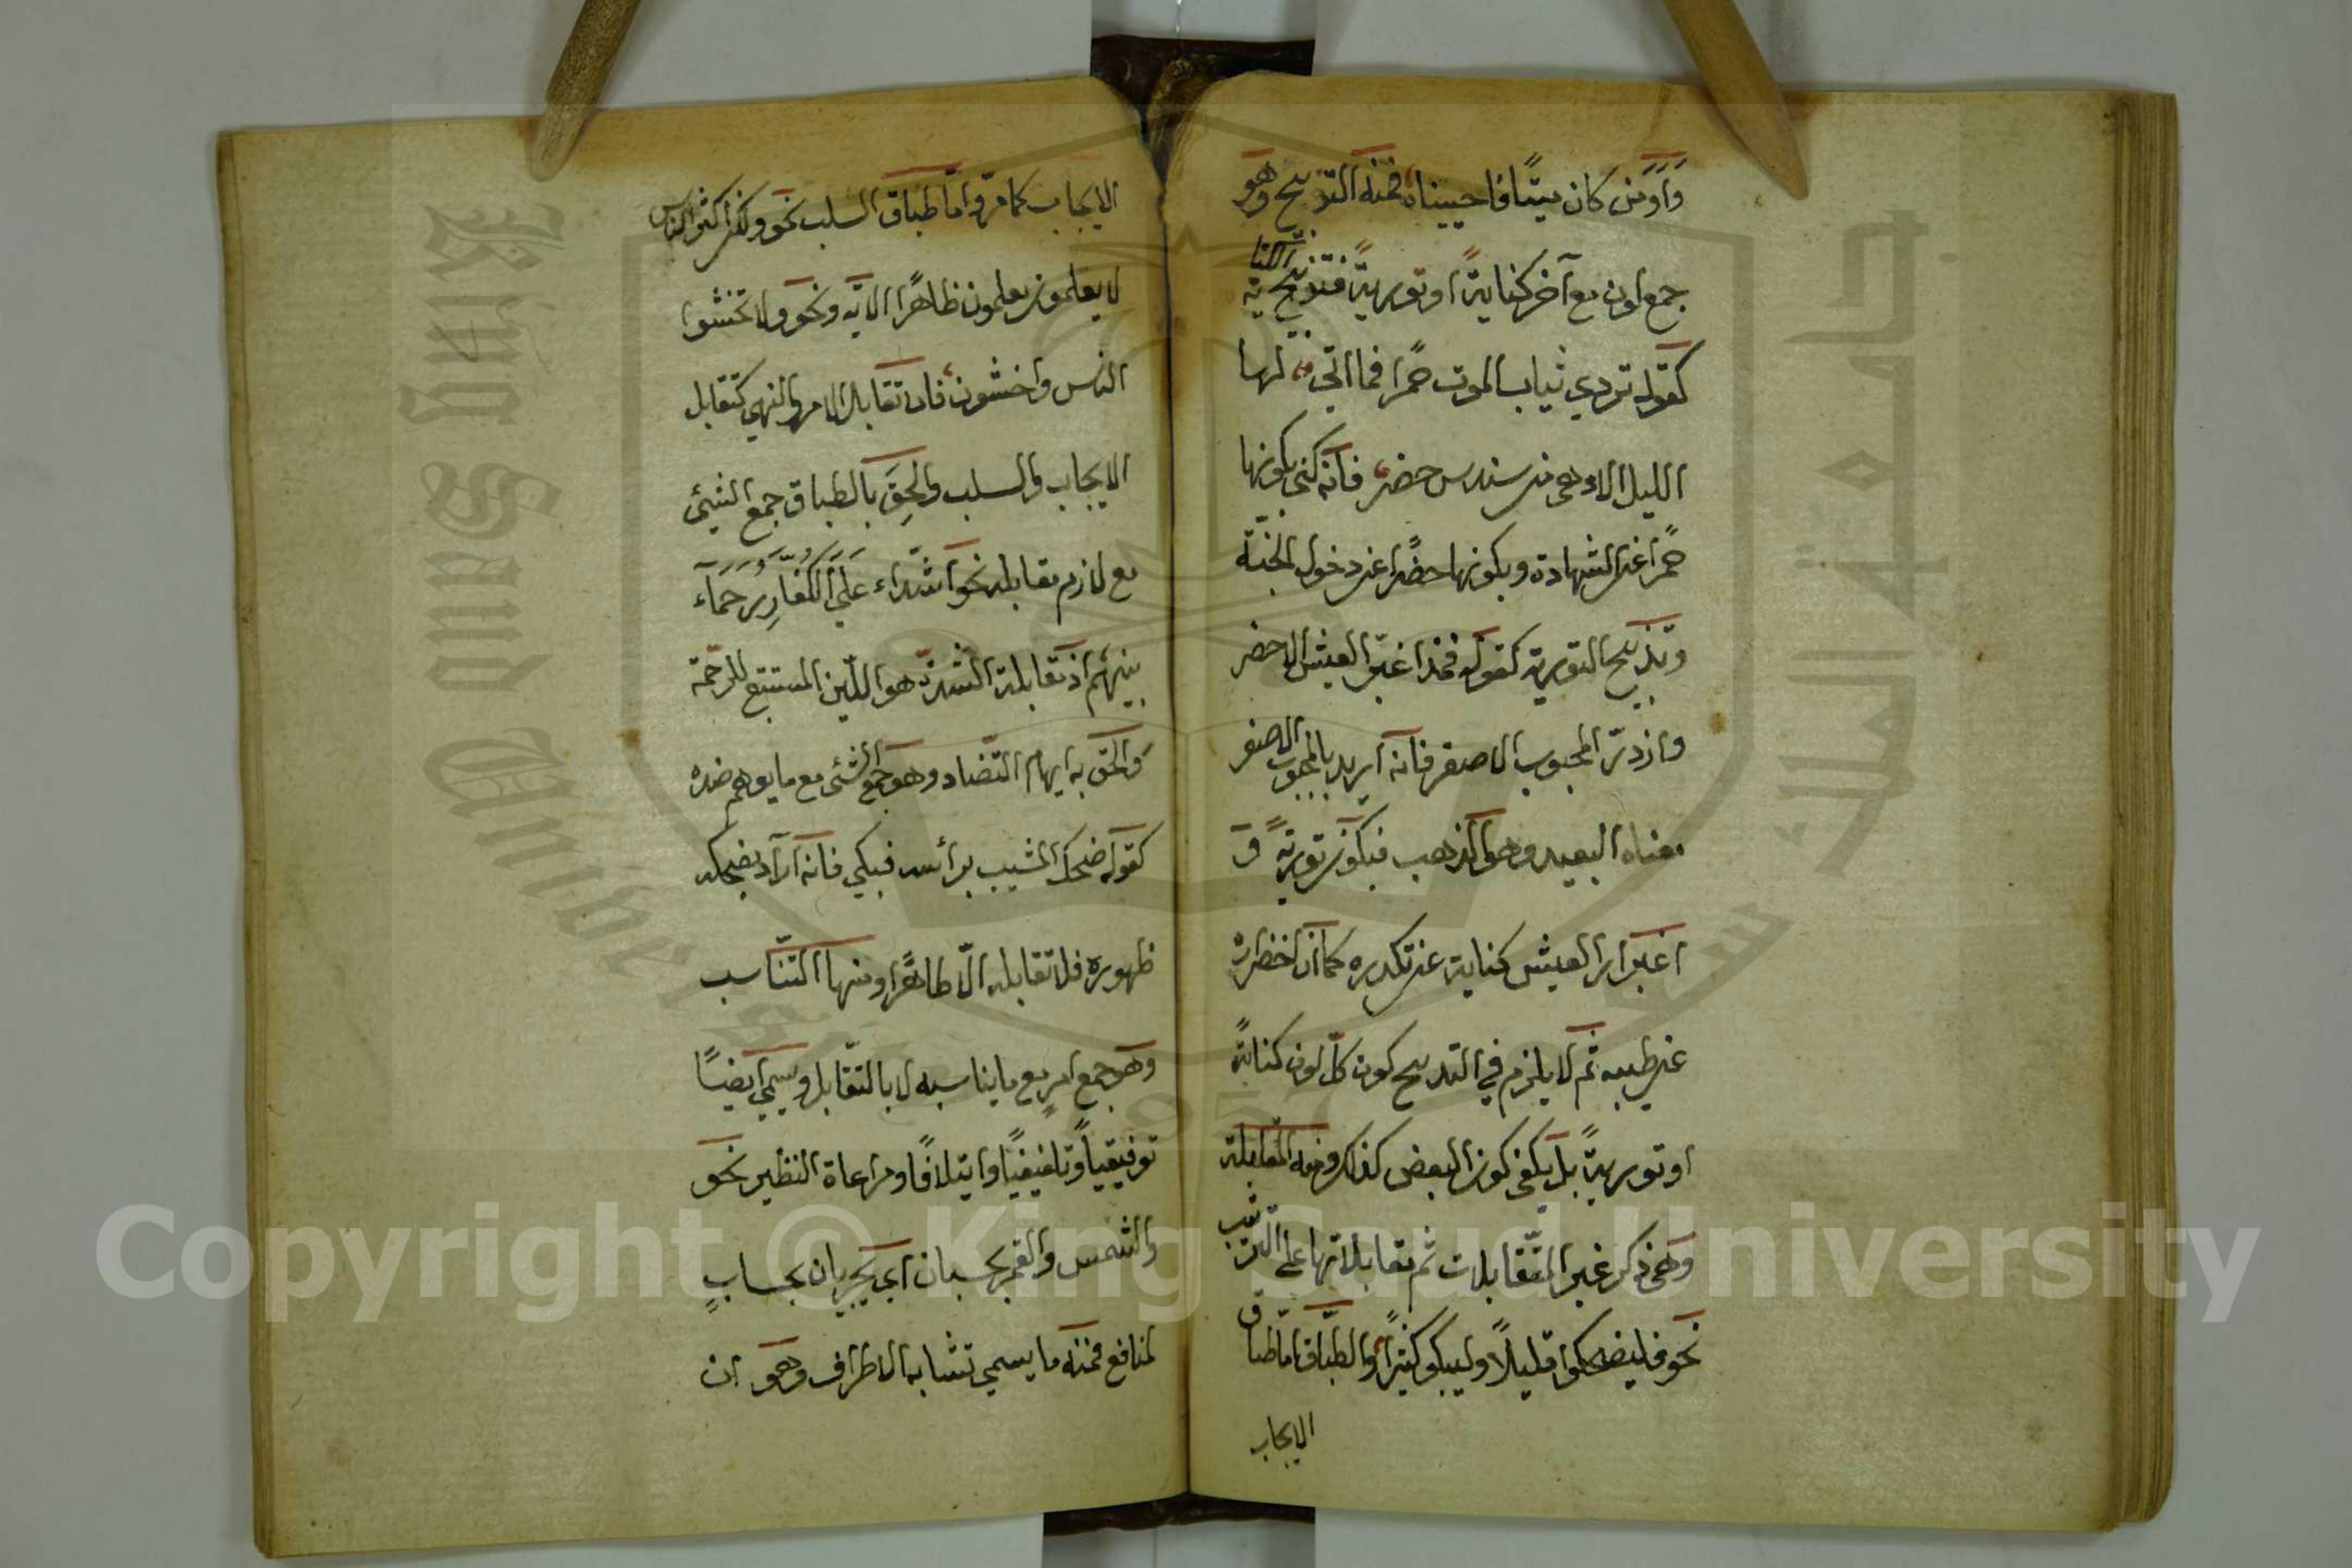 وَأَوَمَن كان ميتًا فاحييناه فمنه التدبيج وهو
جمع لون مع آخر كنايةً او توريةً فتدبيج الكناية
كقوله تردي ثياب الموت حمرا فما اتى لها
الليل الا وهي من سندس خضر فانه كنى بكونها
حمرا عن الشهادة وبكونها خضرا عن دخول الجنة
وتدبيج التورية كقوله فمذ اغبر العيش الاخضر
وازور المحبوب الاصفر فانه اريد بالمحبوب الاصفر
معناه البعيد وهو الذهب فيكون توريةً و
اغبرار العيش كناية عن تكدره كما ان اخضراره
عن طيبه ثم لا يلزم في التدبيج كون كلّ لون كنايةً
او توريةً بل يكفي كون البعض كذلك ومنه المقابلة
وهي ذكر غير المتقابلات ثم مقابلاتها على الترتيب
نحو فليضحكوا قليلاً وليبكوا كثيرًا والطباق اما طباق
الايجاب
الايجاب كما مرّ واما طباق السلب نحو ولكن اكثر الناس
لا يعلمون يعلمون ظاهرًا الآيه ونحو ولا تخشوا
الناس واخشون فان تقابل الامر والنهي كتقابل
الايجاب والسلب والحِقَ بالطباق جمع الشيئ
مع لازم مقابله نحو اشدّاء عَلَى الكُفّارِ رُحَمَآء
بينهم اذ مقابلة الشدة هو اللّين المستتبع للرحمة
والحق به ايهام التضاد وهو جمع الشئ مع ما يوهم ضده
كقوله ضحك المشيب برأسه فبكى فانه اراد بضحكه
ظهوره فلا تقابله الّا ظاهرًا ومنها التناسب
وهو جمع امر مع ما يناسبه لا بالتقابل ويسمى ايضًا
توفيقيًا وتلفيفيًا وايتلافًا ومراعاة النظير نحو
والشمس والقمر بحسبان اى يجريان بحسابٍ
لمنافع فمنه ما يسمى تشابه الاطراف وهو ان
Copyright © King Saud University
King Saud University
جامعة الملك سعود
1957